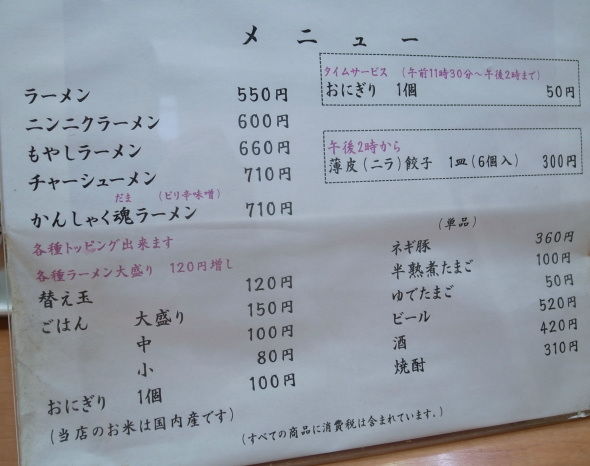 メニュー
ラーメン 550円
ニンニクラーメン 600円
もやしラーメン 660円
チャーシューメン 710円
だま (ピリ辛味噌)
かんしゃく魂ラーメン 710円
各種トッピング出来ます
各種ラーメン大盛り 120円増し
替え玉 120円
ごはん 大盛り 150円
中 100円
小 80円
おにぎり 1個 100円
(当店のお米は国内産です)
タイムサービス (午前11時30分～午後2時まで)
おにぎり 1個 50円
午後2時から
薄皮(ニラ)餃子 1皿(6個入) 300円
(単品)
ネギ豚 360円
半熟煮たまご 100円
ゆでたまご 50円
ビール 520円
酒 420円
焼酎 310円
(すべての商品に消費税は含まれています.)